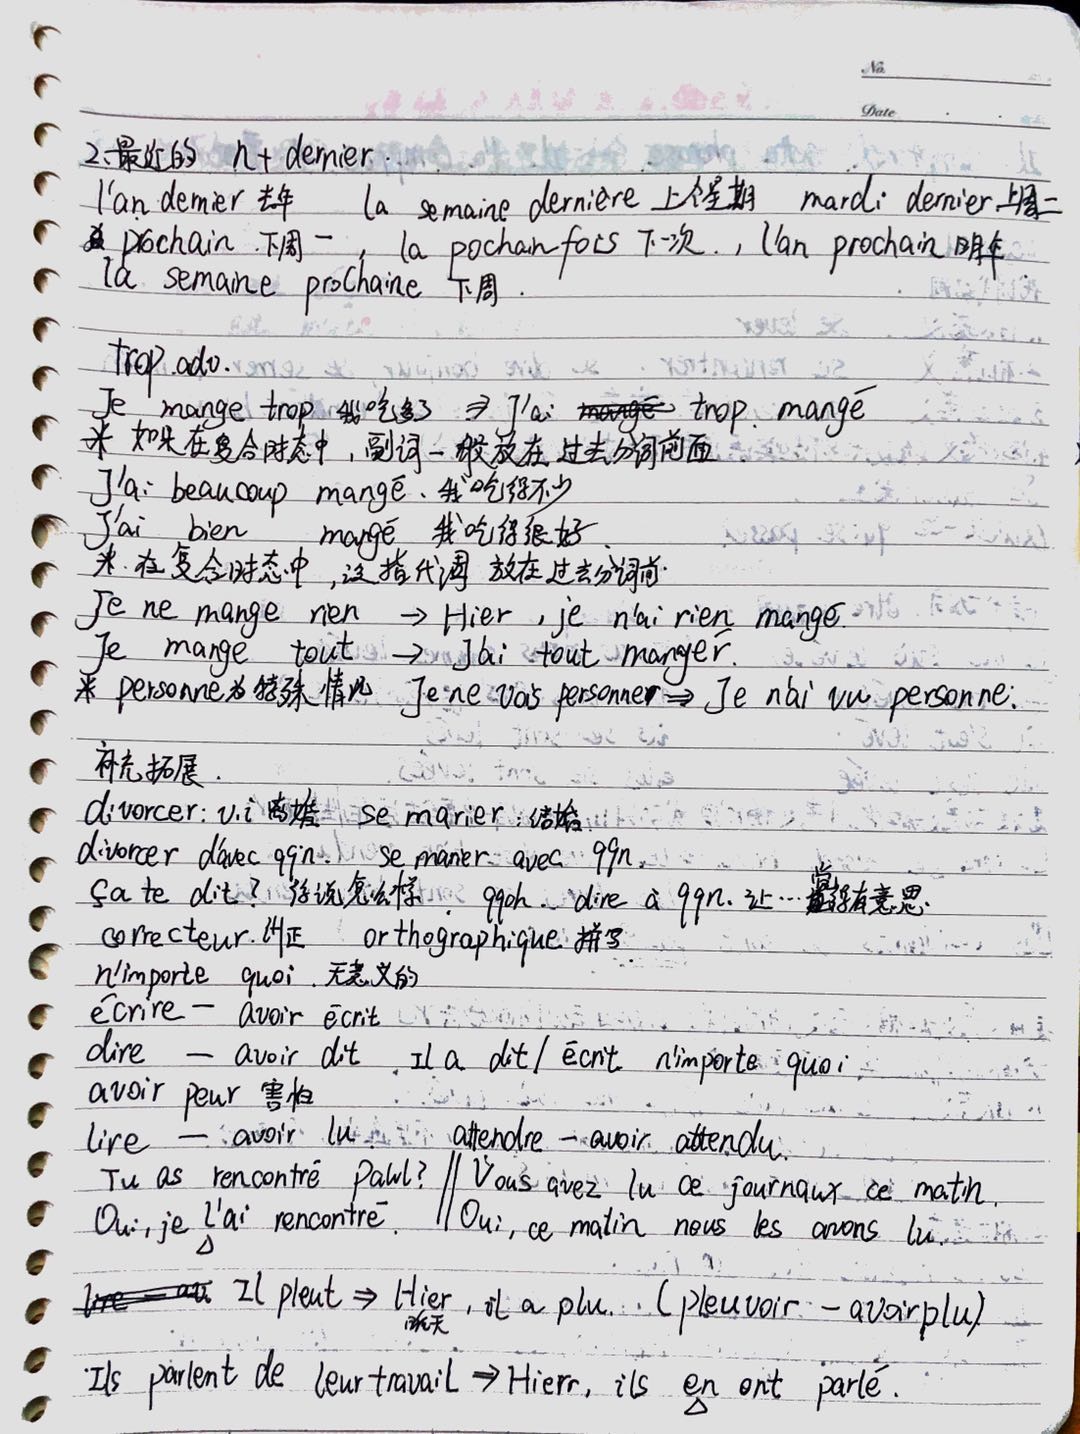 No.
Date
2、最近的 n+ dernier
l'an dernier 去年 la semaine dernière 上个星期 mardi dernier 上周二
prochain 下周一, la pochain fois 下一次., l'an prochain 明年
la semaine prochaine 下周.
trop adv.
Je mange trop 我吃多了 ⇒ J'ai trop mangé
* 如果在复合时态中,副词一般放在过去分词前面
J'ai beaucoup mangé. 我吃得不少
J'ai bien mangé 我吃得很好.
* 在复合时态中,泛指代词放在过去分词前.
Je ne mange rien → Hier, je n'ai rien mangé.
Je mange tout → J'ai tout mangér.
* personne为特殊情况 Je ne vois personner ⇒ Je n'ai vu personne.
补充拓展.
divorcer: v.i 离婚 se marier 结婚
divorcer d'avec qqn. se marier avec qqn.
ça te dit? 你说怎么样. qqch. dire à qqn. 让…觉得有意思.
correcteur 纠正 orthographique 拼写
n'importe quoi 无意义的
écrire — avoir écrit
dire — avoir dit. Il a dit / écrit n'importe quoi
avoir peur 害怕
lire — avoir lu attendre — avoir attendu.
Tu as rencontré Pawl? // Vous avez lu ce journaux ce matin.
Oui, je l'ai rencontré. // Oui, ce matin nous les avons lu.
Il pleut ⇒ Hier, il a plu... (pleuvoir — avoir plu)
昨天
Ils parlent de leur travail ⇒ Hierr, ils en ont parlé.